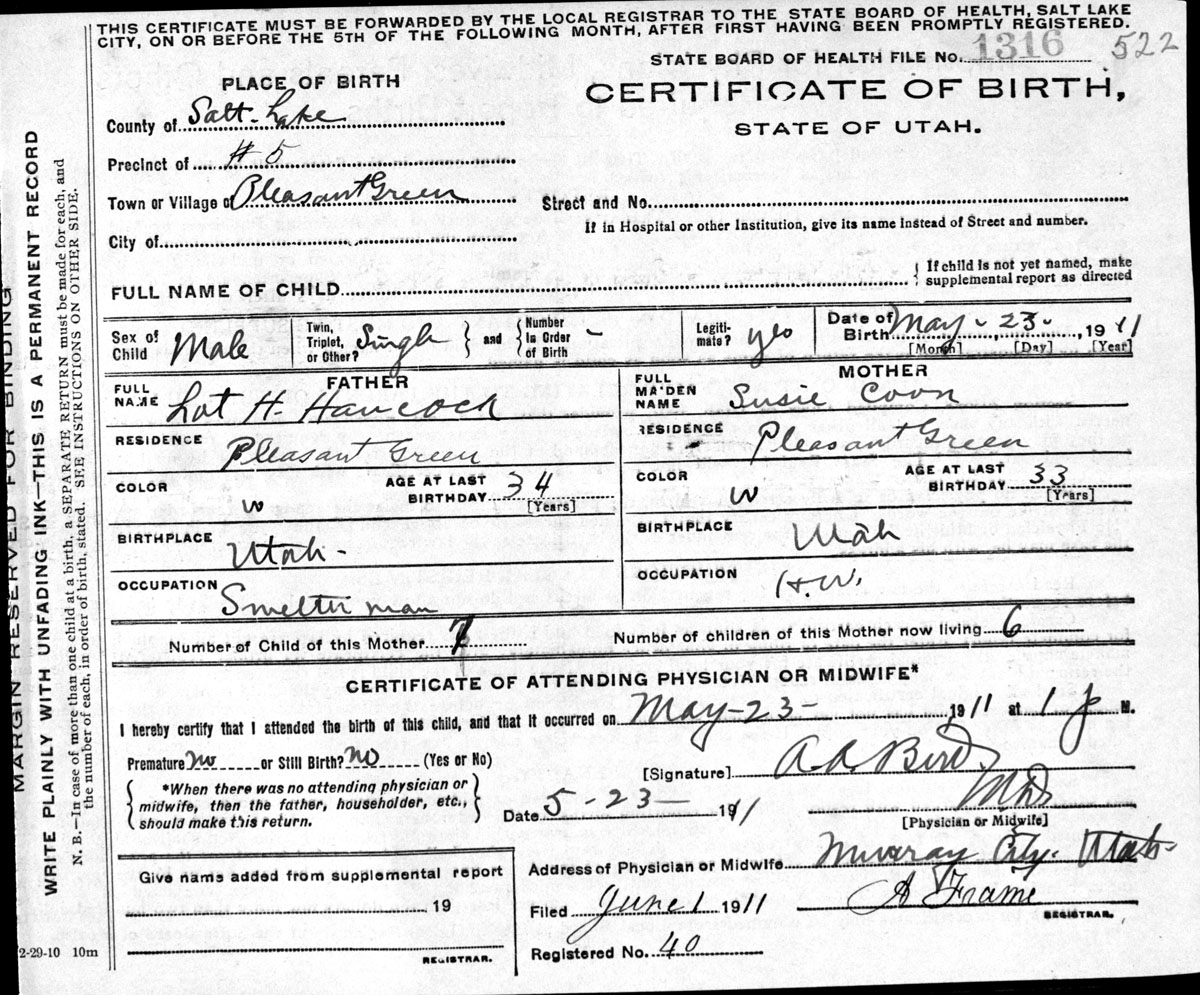 THIS CERTIFICATE MUST BE FORWARDED BY THE LOCAL REGISTRAR TO THE STATE BOARD OF HEALTH, SALT LAKE
CITY, ON OR BEFORE THE 5TH OF THE FOLLOWING MONTH, AFTER FIRST HAVING BEEN PROMPTLY REGISTERED.
STATE BOARD OF HEALTH FILE NO. 1316 522
PLACE OF BIRTH
CERTIFICATE OF BIRTH,
STATE OF UTAH.
County of Salt Lake
Precinct of # 5
Town or Village of Pleasant Green
Street and No.
If in Hospital or other Institution, give its name instead of Street and number.
City of
FULL NAME OF CHILD
If child is not yet named, make
supplemental report as directed
Sex of
Child Male
Twin,
Triplet,
or Other? Single
and
Number
in Order
of Birth –
Legiti-
mate? yes
Date of
Birth May - 23 - , 1911
[Month] [Day] [Year]
FATHER
FULL
NAME Lot H. Hancock
RESIDENCE Pleasant Green
COLOR W
AGE AT LAST
BIRTHDAY 34
[Years]
BIRTHPLACE Utah -
OCCUPATION Smelter man
MOTHER
FULL
MAIDEN
NAME Susie Coon
RESIDENCE Pleasant Green
COLOR W
AGE AT LAST
BIRTHDAY 33
[Years]
BIRTHPLACE Utah
OCCUPATION H.W.
Number of Child of this Mother 7
Number of children of this Mother now living 6
CERTIFICATE OF ATTENDING PHYSICIAN OR MIDWIFE*
I hereby certify that I attended the birth of this child, and that it occurred on May - 23 - 1911 at 1 p M.
Premature no or Still Birth? no (Yes or No)
[Signature] A.A. Bird
*When there was no attending physician or
midwife, then the father, householder, etc.,
should make this return.
Date 5 - 23 - 1911
M.D.
[Physician or Midwife]
Address of Physician or Midwife Murray City. Utah
Give name added from supplemental report
19
REGISTRAR.
Filed June 1 1911
A Frame
REGISTRAR.
Registered No. 40
2-29-10 10m
MARGIN RESERVED FOR BINDING
WRITE PLAINLY WITH UNFADING INK—THIS IS A PERMANENT RECORD
N. B.—In case of more than one child at a birth, a SEPARATE RETURN must be made for each, and
the number of each, in order of birth, stated. SEE INSTRUCTIONS ON OTHER SIDE.